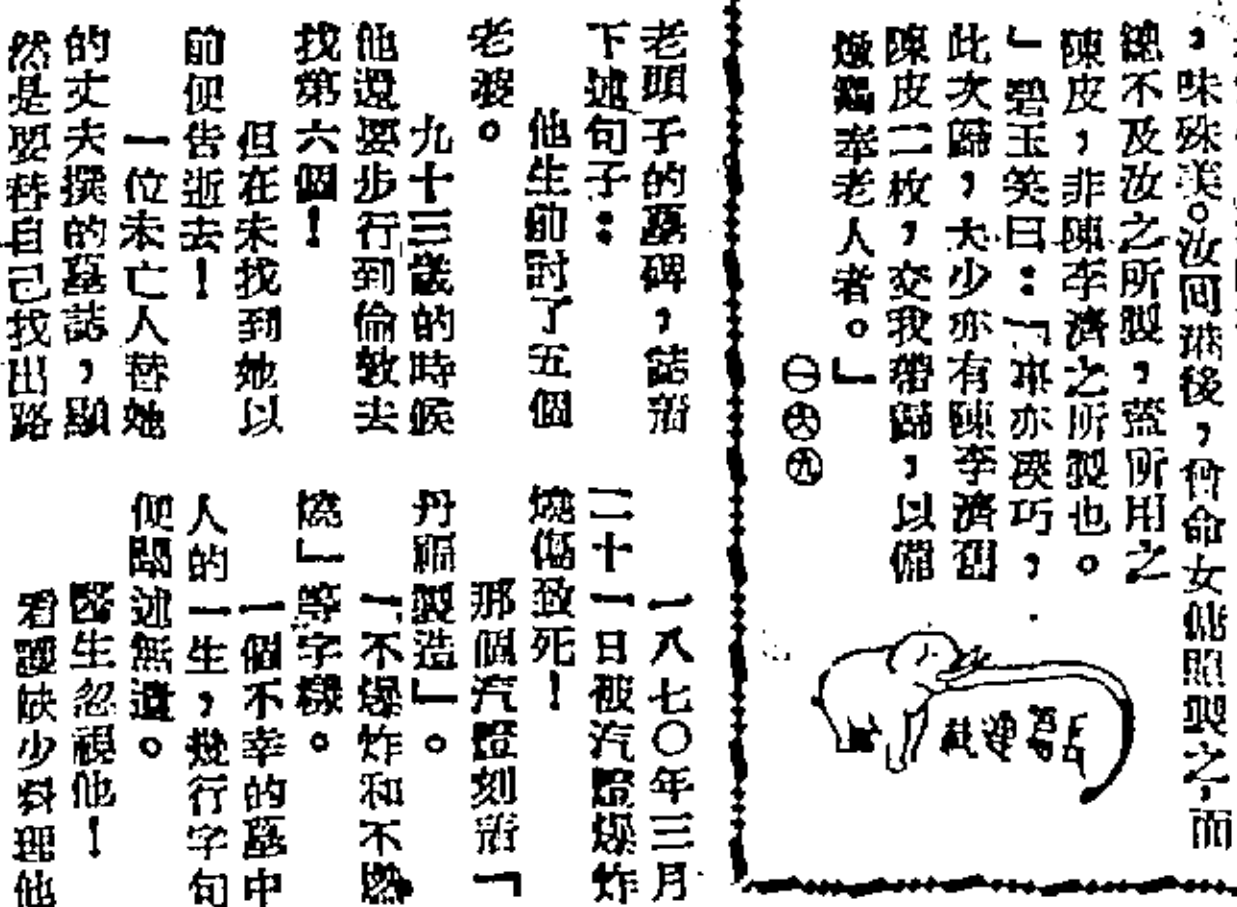 ，味殊美。汝同港後，曾命女傭照製之，而
總不及汝之所製，蓋所用之
陳皮，非陳李濟之所製也。
」碧玉笑曰：「事亦湊巧，
此次歸，大少亦有陳李濟舊
陳皮二枚，交我帶歸，以備
燉鴨奉老人者。」
㊀㊅㊈
老頭子的墓碑，誌着
下述句子：
他生前討了五個
老婆。
九十三歲的時候
他還要步行到倫敦去
找第六個！
但在未找到她以
前便告逝去！
一位未亡人替她
的丈夫撰的墓誌，顯
然是要替自己找出路
一八七〇年三月
二十一日被汽燈爆炸
燒傷致死！
那個汽燈刻着「
丹福製造」。
「不爆炸和不燃
燒」等字樣。
一個不幸的墓中
人的一生，幾行字句
便闡述無遺。
醫生忽視他！
看護缺少料理他